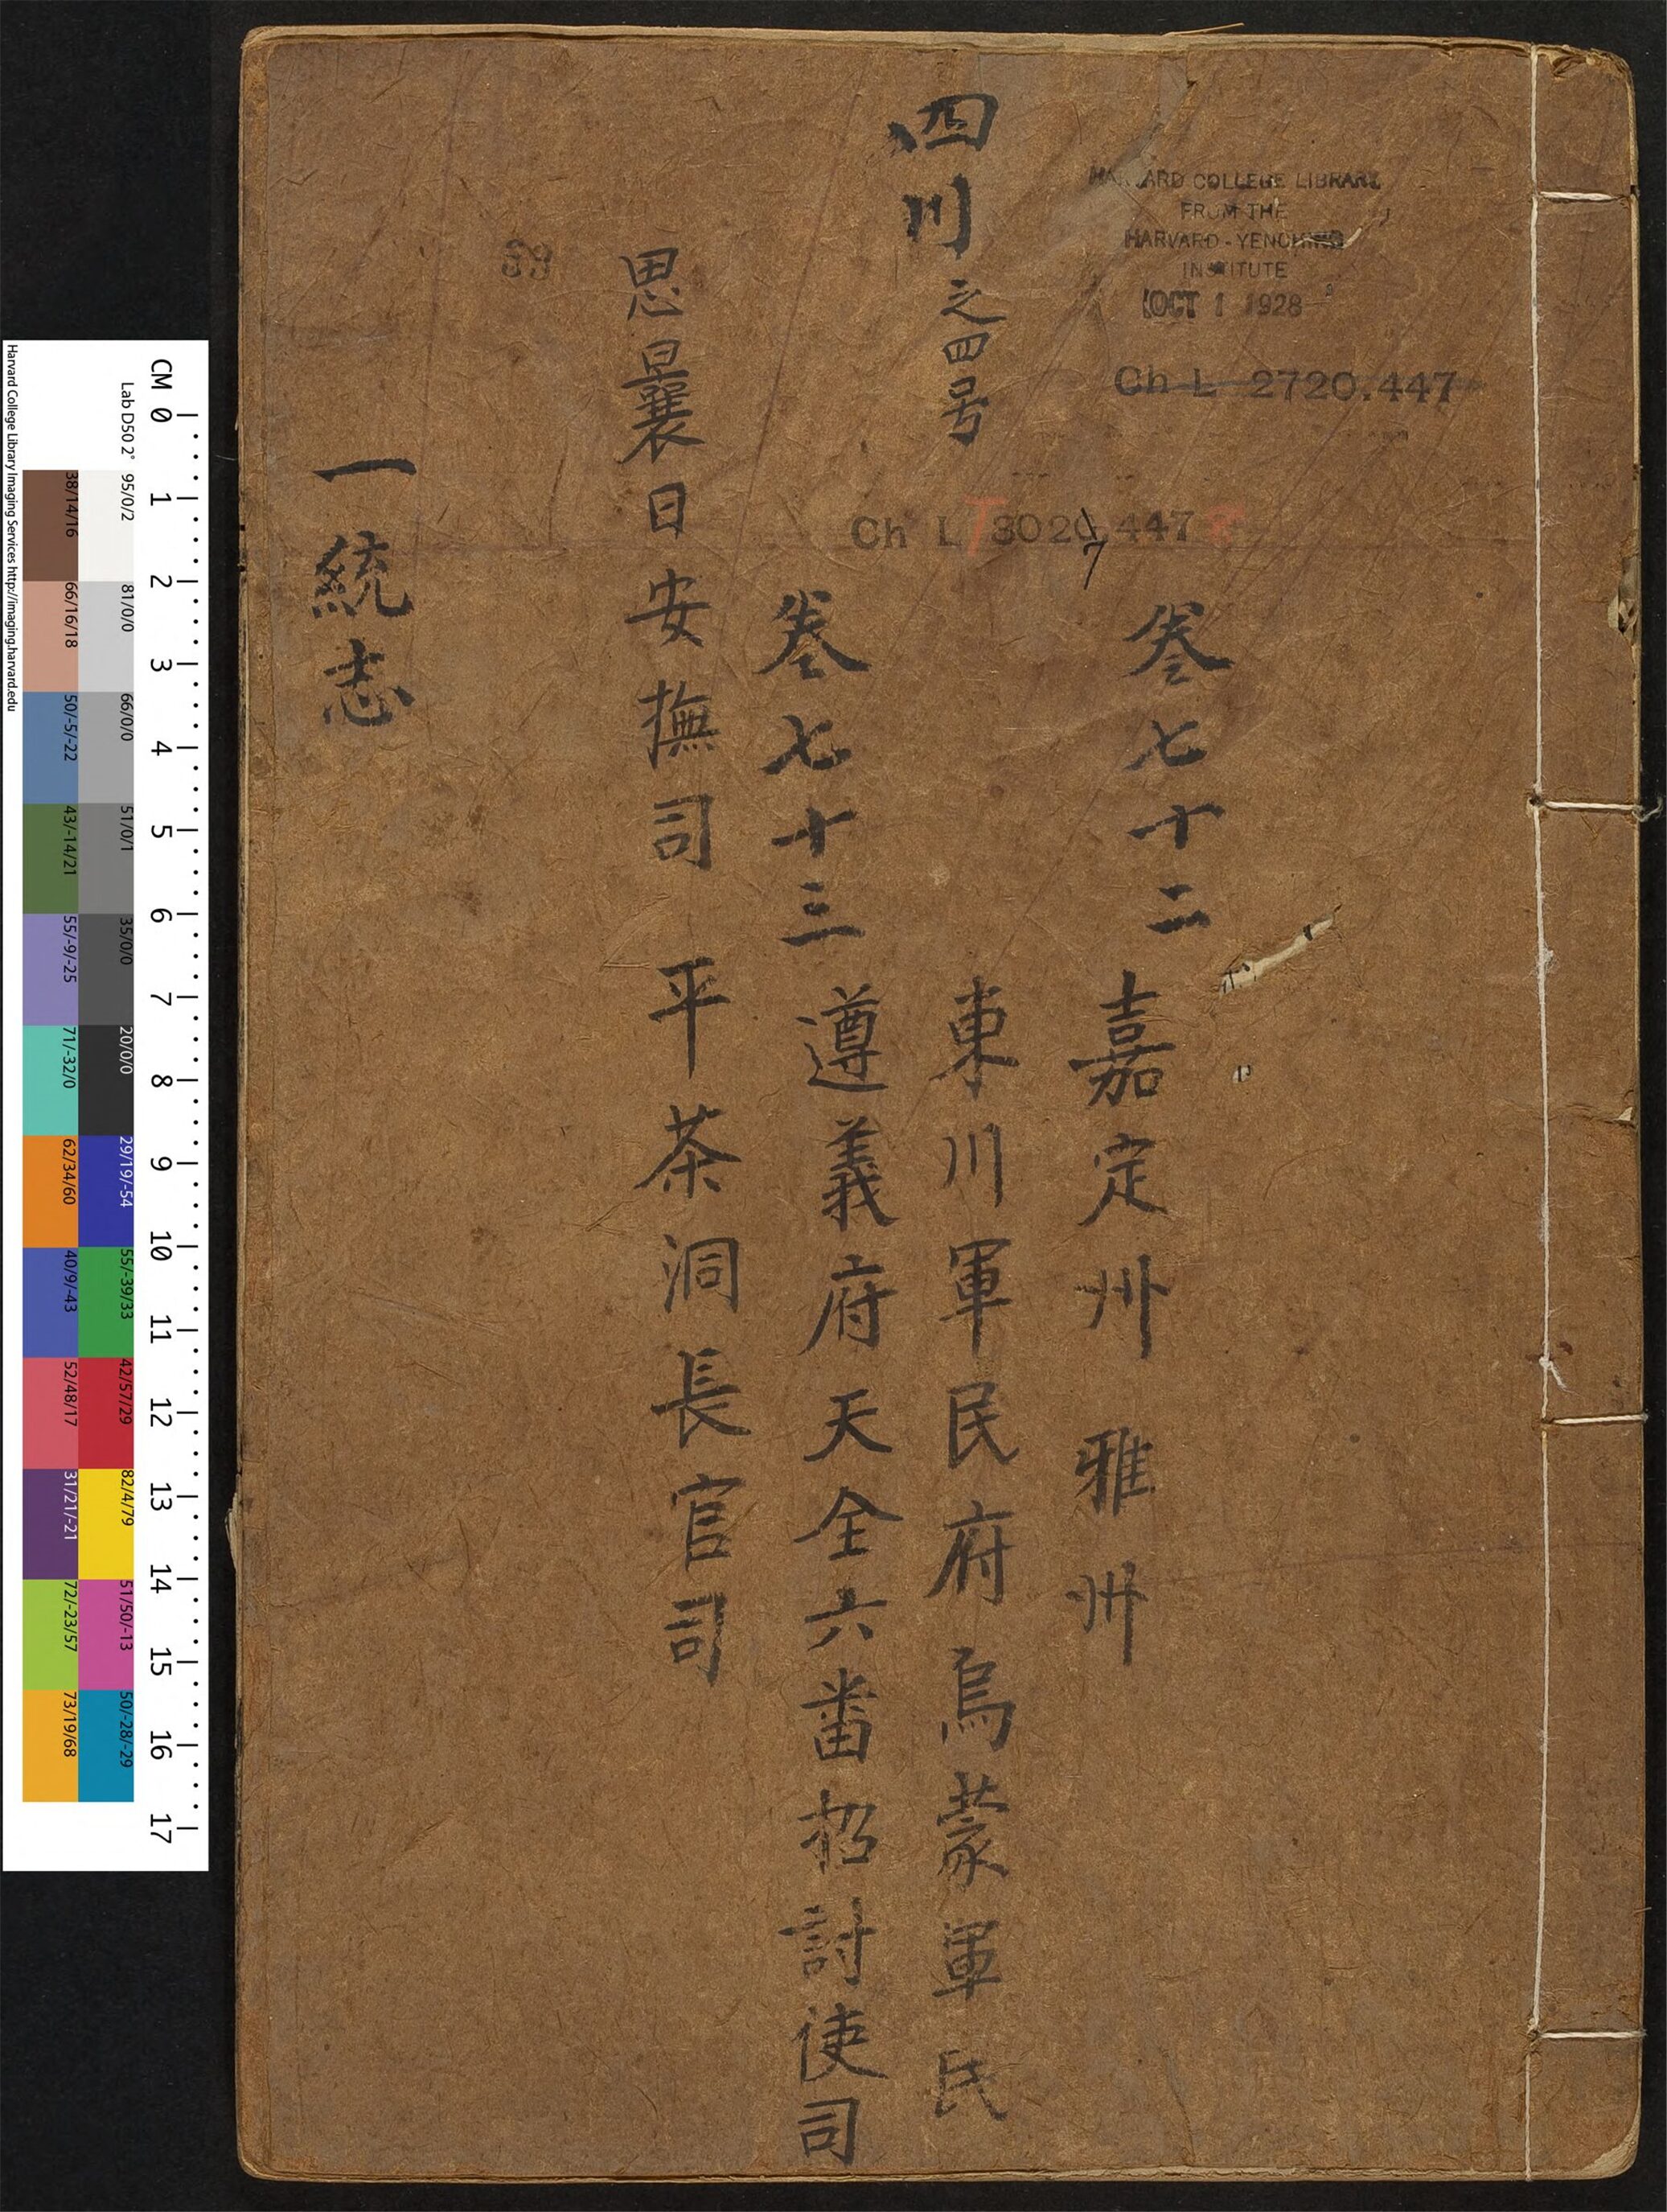 HARVARD COLLEGE LIBRARY
FROM THE
HARVARD-YENCHING
INSTITUTE
OCT 1 1928
Ch L 2720.447
Ch L T 3020.447
7
四川之四号
卷七十二 嘉定州 雅州
東川軍民府 烏蒙軍民
卷七十三 遵義府 天全六番招討使司
思曩日安撫司 平茶洞長官司
一統志
69
CM 0 1 2 3 4 5 6 7 8 9 10 11 12 13 14 15 16 17
Lab D50 2° 95/0/2 81/0/0 66/0/0 51/0/1 35/0/0 20/0/0 29/19/-54 55/-39/33 42/57/29 82/4/79 51/50/-13 50/-28/-29
38/14/16 66/16/18 50/-5/-22 43/-14/21 55/-9/-25 71/-32/0 62/34/60 40/9/-43 52/48/17 31/21/-21 72/-23/57 73/19/68
Harvard College Library Imaging Services http://imaging.harvard.edu